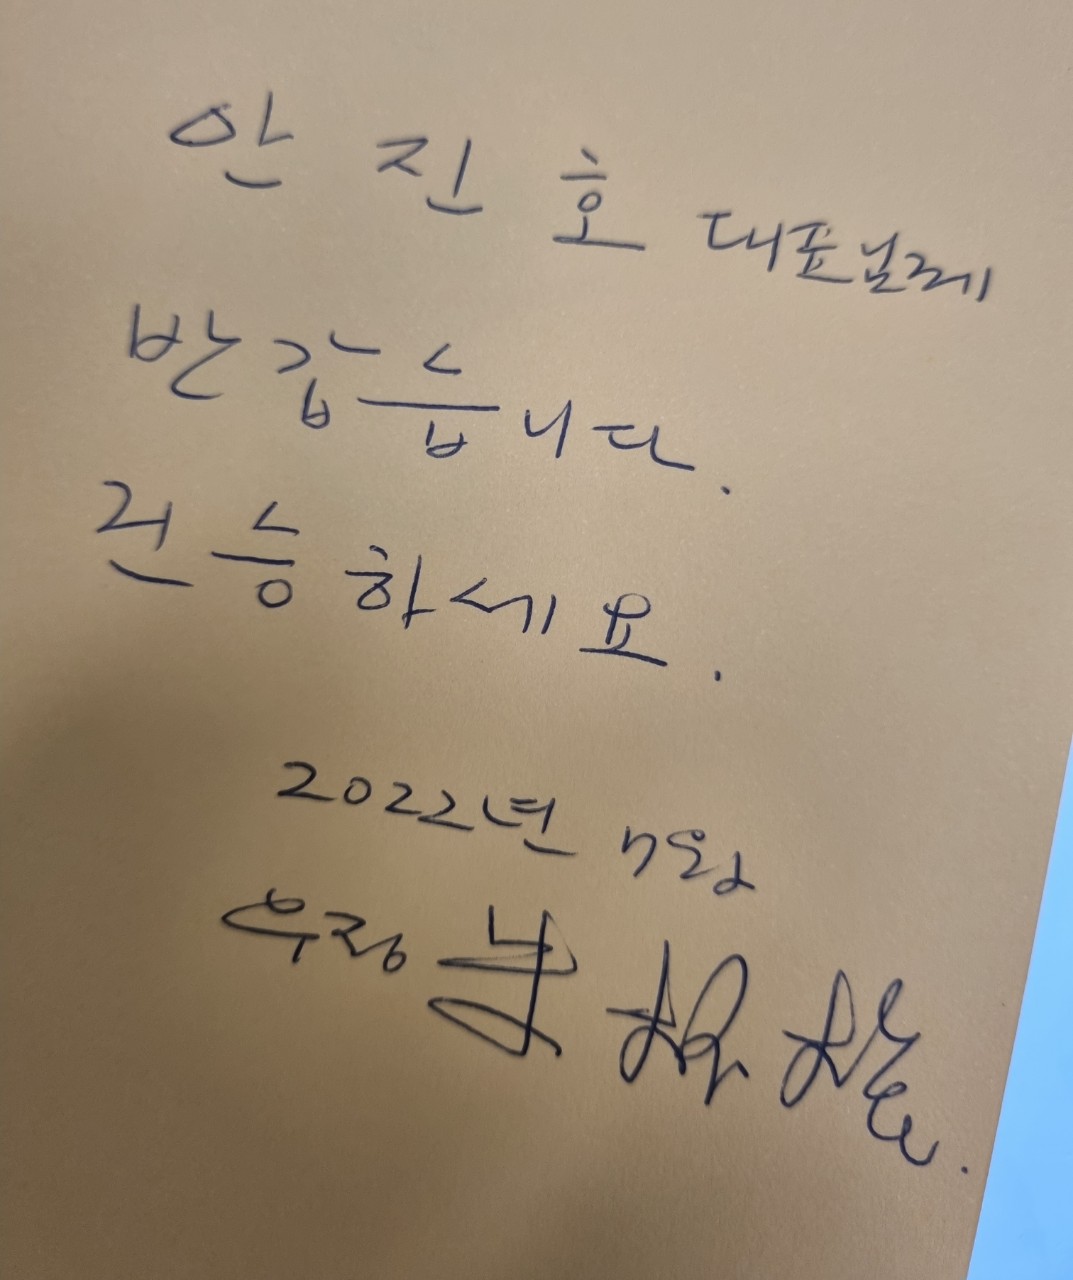 안 진 호 대표님께
반갑습니다.
건승하세요.
2022년 7월
우정